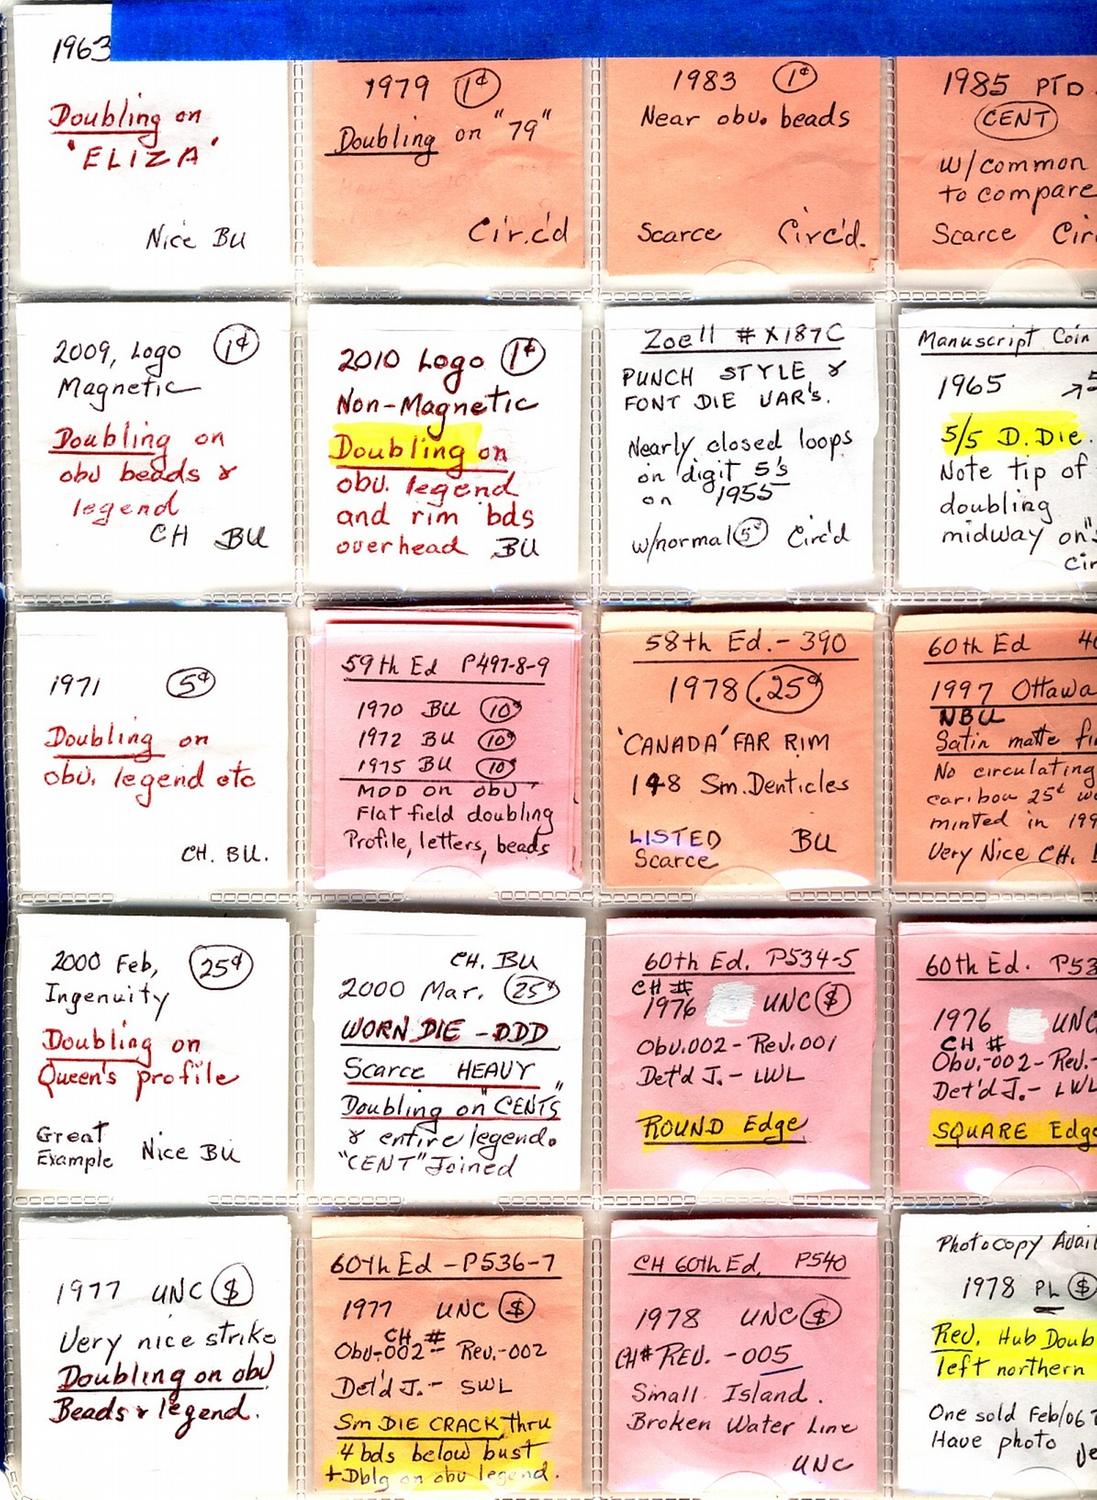 1963
Doubling on
'ELIZA'
Nice BU
1979 1¢
Doubling on "79"
Cir.c'd
1983 1¢
Near obv. beads
Scarce Circ'd.
1985 PTD
CENT
w/common
to compare
Scarce
2009, Logo 1¢
Magnetic
Doubling on
obv beads &
legend
CH BU
2010 Logo 1¢
Non-Magnetic
Doubling on
obv. legend
and rim bds
overhead BU
Zoell # X187C
PUNCH STYLE &
FONT DIE VAR'S.
Nearly closed loops
on digit 5's
on 1955
w/normal 5¢ Circ'd
Manuscript Coin
1965
5/5 D. Die.
Note tip of
doubling
midway on
1971 5¢
Doubling on
obv. legend etc
CH. BU.
59th Ed P497-8-9
1970 BU 10¢
1972 BU 10¢
1975 BU 10¢
MDD on obv
Flat field doubling
Profile, letters, beads
58th Ed. - 390
1978 .25¢
'CANADA' FAR RIM
148 Sm. Denticles
LISTED BU
Scarce
60th Ed
1997 Ottawa
NBU
Satin matte
No circulating
caribou 25¢
minted in
Very Nice CH.
2000 Feb, 25¢
Ingenuity
Doubling on
Queen's profile
Great
Example Nice BU
CH. BU
2000 Mar. 25¢
WORN DIE - DDD
Scarce HEAVY
Doubling on "CENTS"
& entire legend.
"CENT" Joined
60th Ed. P534-5
CH #
1976 UNC $
Obv.002 - Rev.001
Det'd J. - LWL
ROUND Edge
60th Ed.
1976 UNC
CH #
Obv.-002 - Rev.-
Det'd J. - LWL
SQUARE Edge
1977 UNC $
Very nice strike
Doubling on obv
Beads & legend.
60th Ed - P536-7
1977 UNC $
CH #
Obv-002 - Rev.-002
Det'd J. - SWL
Sm DIE CRACK thru
4 bds below bust
+ Dblg on obv legend.
CH 60th Ed. P540
1978 UNC $
CH# REV. - 005
Small Island.
Broken Water Line
UNC
Photocopy
1978 PL $
Rev. Hub Doub
left northern
One sold Feb/06
Have photo